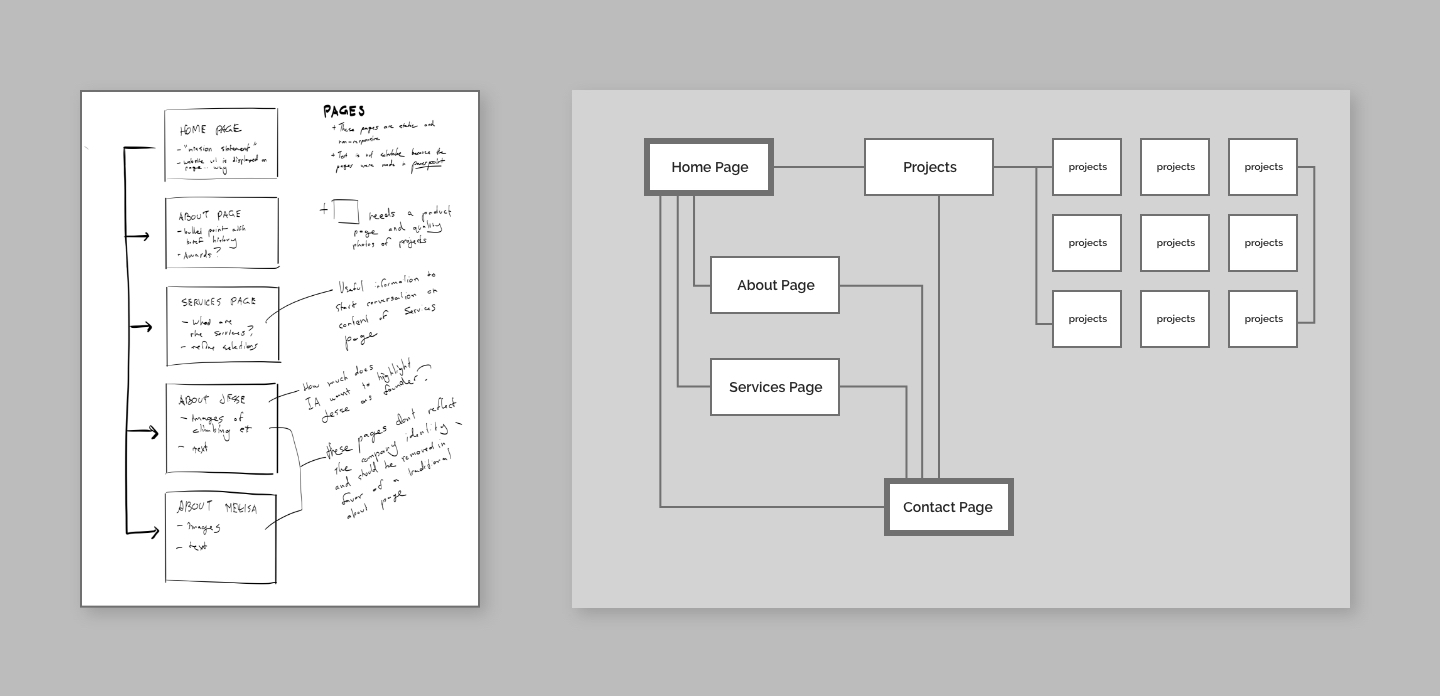 HOME PAGE
- "mission statement"
- website url is displayed on
page .. why
ABOUT PAGE
- bullet point with
brief history
- Awards?
SERVICES PAGE
- what are
the services?
- refine selections
ABOUT JESSE
- Images of
climbing et
- text
ABOUT MELISA
- Images
- text
PAGES
+ These pages are static and
non-responsive
+ Text is not selectable because the
pages were made in powerpoint
+ needs a product
page and quality
photos of projects
Useful information to
start conversation on
content of services
page
How much does
IA want to highlight
Jesse as founder?
these pages dont reflect
the company identity -
and should be removed in
favor of a traditional
about page
Home Page
Projects
projects
projects
projects
projects
projects
projects
projects
projects
projects
About Page
Services Page
Contact Page